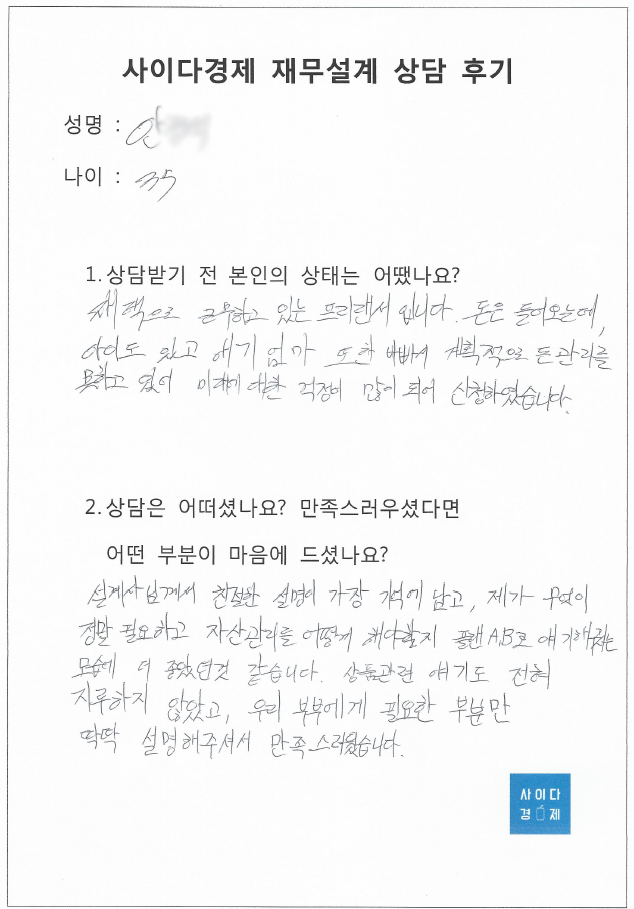 사이다경제 재무설계 상담 후기
성명 : 안
나이 : 35
1. 상담받기 전 본인의 상태는 어땠나요?
재택으로 근무하고 있는 프리랜서 입니다. 돈은 들어오는데,
아이도 있고 애기 엄마 또한 바빠서 계획적으로 돈관리를
못하고 있어 미래에 대한 걱정이 많이 되어 신청하였습니다.
2. 상담은 어떠셨나요? 만족스러우셨다면
어떤 부분이 마음에 드셨나요?
설계사님께서 친절한 설명이 가장 기억에 남고, 제가 무엇이
정말 필요하고 자산관리를 어떻게 해야할지 플랜 A,B로 얘기해주시는
모습에 더 좋았던것 같습니다. 상품관련 얘기도 전혀
지루하지 않았고, 우리 부부에게 필요한 부분만
딱딱 설명해주셔서 만족스러웠습니다.
사이다
경제